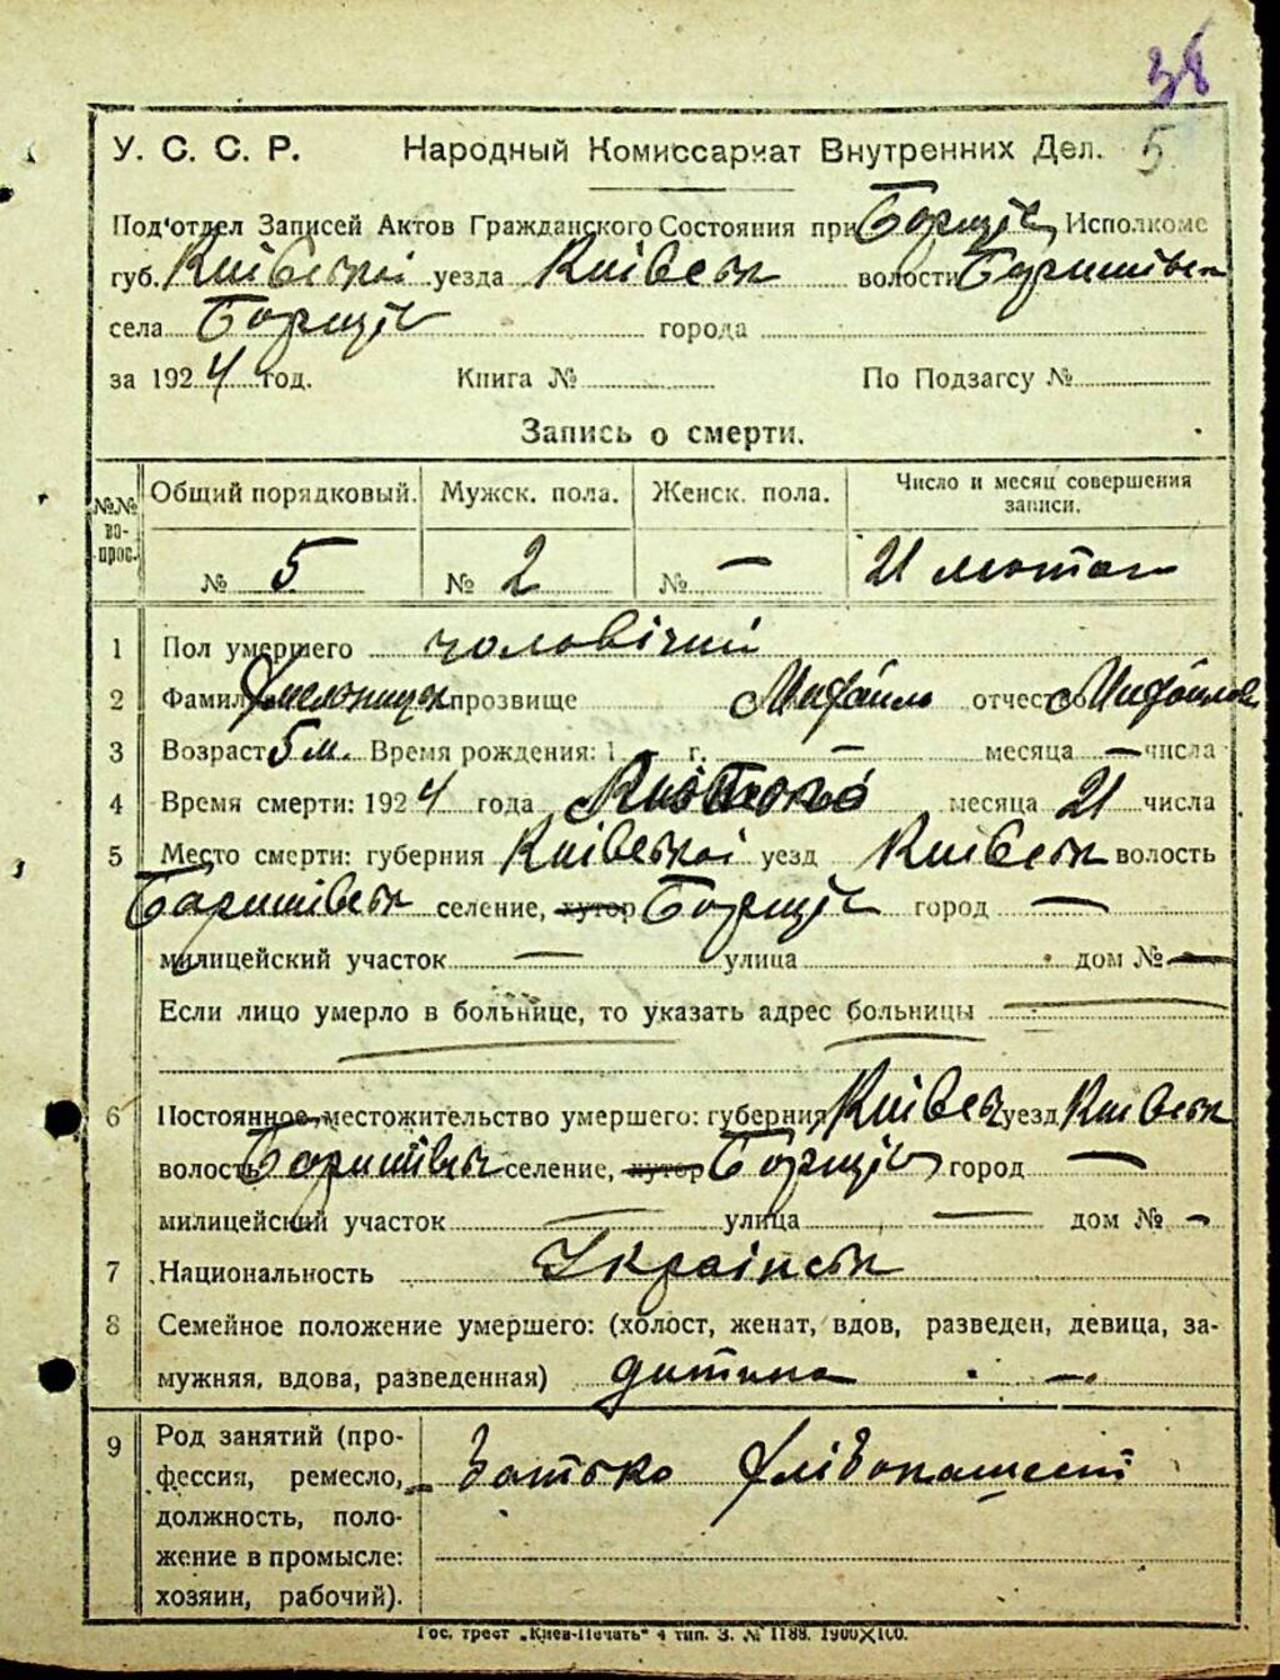 38
У. С. С. Р. Народный Комиссариат Внутренних Дел. 5
Под'отдел Записей Актов Гражданского Состояния при Борщів Исполкоме
губ. Київської уезда Київськ волости Баришівськ
села Борщів города
за 1924 год. Книга № По Подзагсу №
Запись о смерти.
№№ вопрос. Общий порядковый. Мужск. пола. Женск. пола. Число и месяц совершения записи.
№ 5 № 2 № — 21 лютого
1 Пол умершего чоловічий
2 Фамилия прозвище Михайло отчество Михайлов
3 Возраст 5 м. Время рождения: 1 г. — месяца — числа
4 Время смерти: 1924 года месяца 21 числа
5 Место смерти: губерния Київської уезд Київськ волость
Баришівськ селение, хутор Борщів город —
милицейский участок — улица дом № —
Если лицо умерло в больнице, то указать адрес больницы —
6 Постоянное местожительство умершего: губерния Київськ уезд Київськ
волость Баришівськ селение, хутор Борщів город —
милицейский участок — улица — дом № —
7 Национальность Українськ
8 Семейное положение умершего: (холост, женат, вдов, разведен, девица, за-
мужняя, вдова, разведенная) дитина —
9 Род занятий (про-
фессия, ремесло, Батько хлібопашест
должность, поло-
жение в промысле:
хозяин, рабочий).
Гос. трест „Киев-Печать“ 4 тип. З. № 1188. 1900×100.